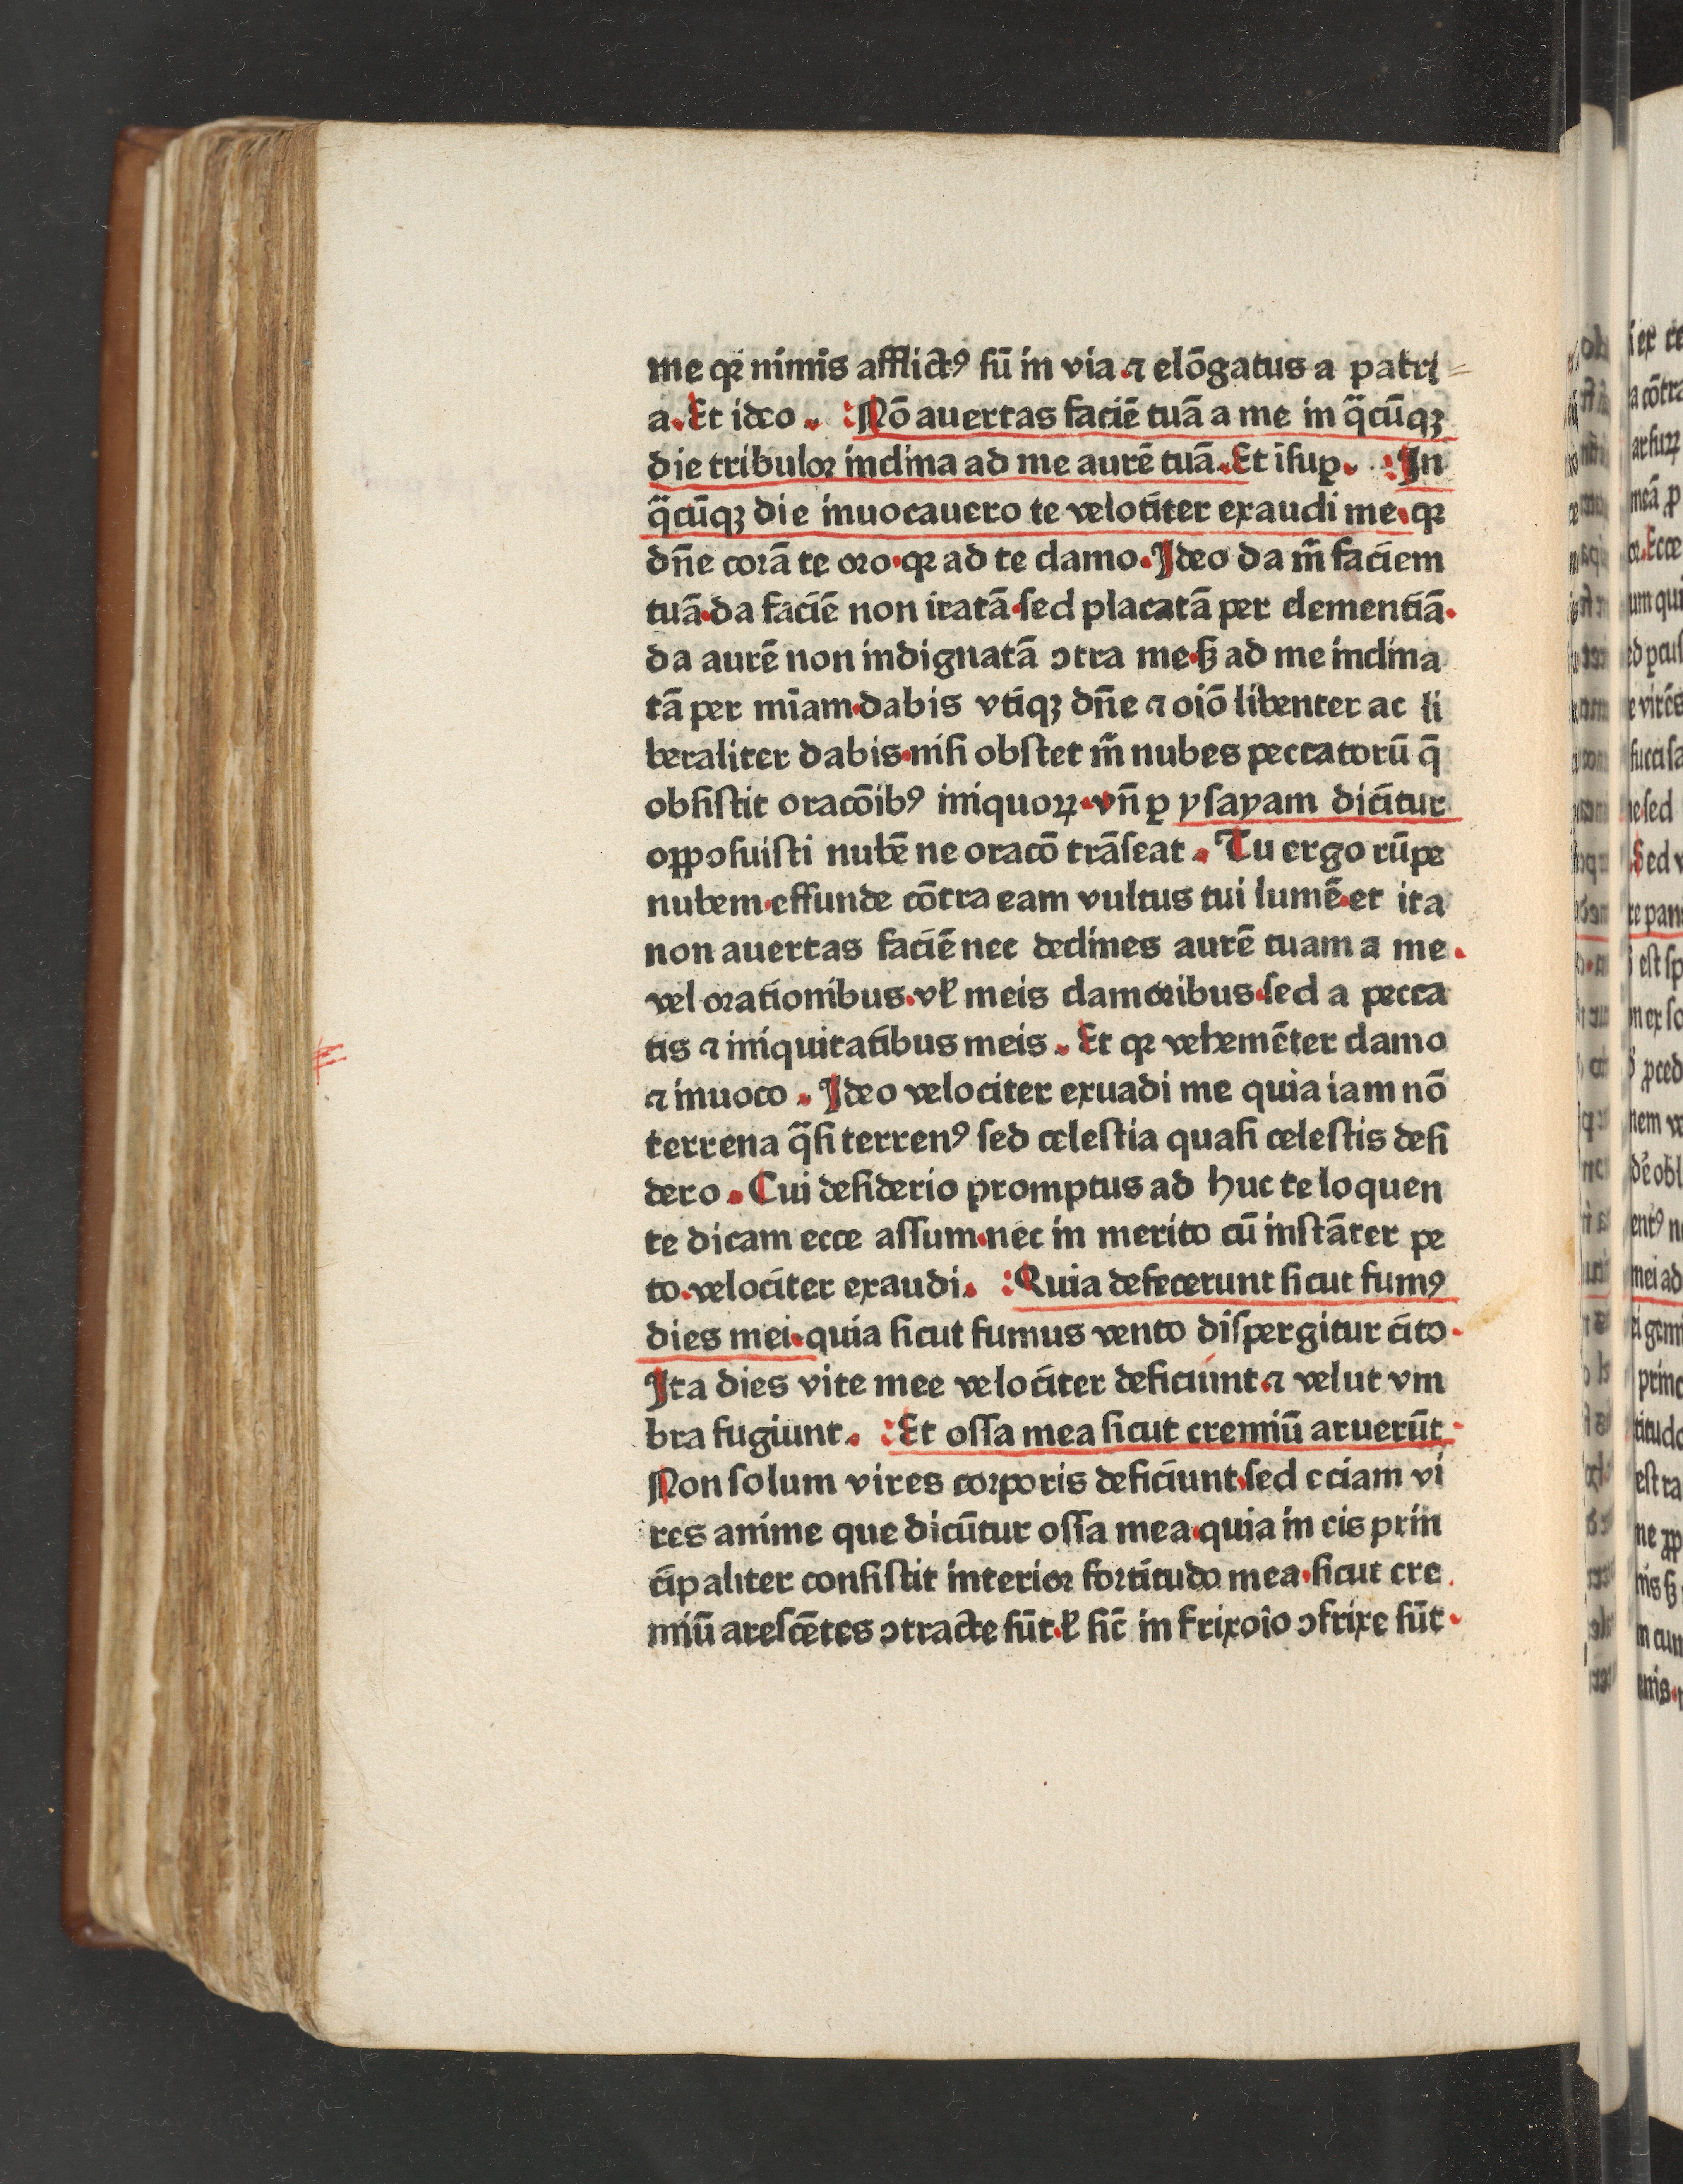 me qꝛ nimis afflictꝰ sū in via ⁊ elōgatus a patri
a. Et ideo. Nō auertas faciē tuā a me in q̄cūqꝫ
die tribuloꝛ inclina ad me aurē tuā. Et isuꝑ. In
q̄cūqꝫ die inuocauero te velociter exaudi me. qꝛ
dn̄e corā te oro. qꝛ ad te clamo. Ideo da m̄ faciem
tuā. da faciē non iratā. sed placatā per clementiā.
da aurē non indignatā ↄtra me. sꝫ ad me inclina
tā per miam̄. dabis vtiqꝫ dn̄e ⁊ oiō libenter ac li
beraliter dabis. nisi obstet m̄ nubes peccatorū q̄
obsistit oracōibꝰ iniquoꝝ. vn̄ ꝑ ysayam dicitur
oꝑꝑosuisti nubē ne oracō trāseat. Tu ergo rūpe
nubem. effunde cōtra eam vultus tui lumē. et ita
non auertas faciē nec declines aurē tuam a me.
vel orationibus. vl̄ meis clamoribus. sed a pecca
tis ⁊ iniquitatibus meis. Et qꝛ vehemēter clamo
⁊ inuoco. Ideo velociter exuadi me quia iam nō
terrena q̄si terrenꝰ sed celestia quasi celestis desi
dero. Cui desiderio promptus ad huc te loquen
te dicam ecce assum. nec in merito cū instāter pe
to. velociter exaudi. Quia defecerunt sicut fumꝰ
dies mei. quia sicut fumus vento dispergitur cito.
Ita dies vite mee velociter deficiunt ⁊ velut vm
bra fugiunt. Et ossa mea sicut cremiū aruerūt.
Non solum vires corporis deficiunt. sed eciam vi
res anime que dicūtur ossa mea. quia in eis prin
cipaliter consistit interior fortitudo mea. sicut cre
miū arescētes ↄtracte sūt. l̄ sic̄ in frixoio ↄfrixe sūt.